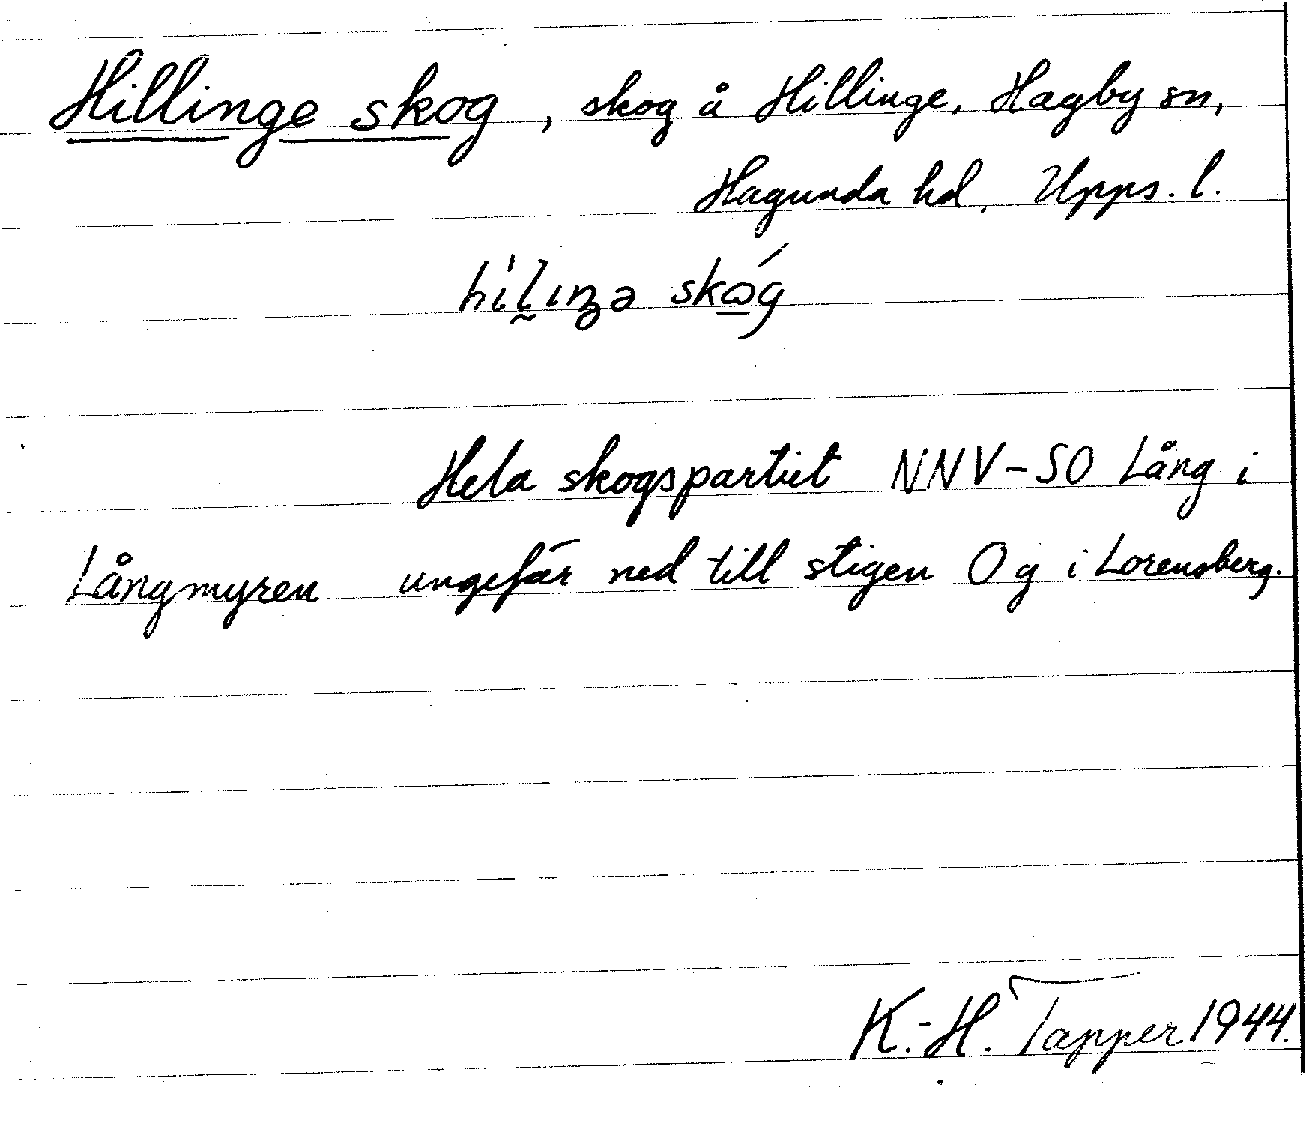 Hillinge skog, skog å Hillinge, Hagby sn,
Hagunda hd, Upps. l.
hi̍l̰ıŋə skώ̲g
Hela skogspartiet NNV-SO Lång i
Långmyren ungefär ned till stigen O g i Lorensberg.
K.-H. Tapper 1944.